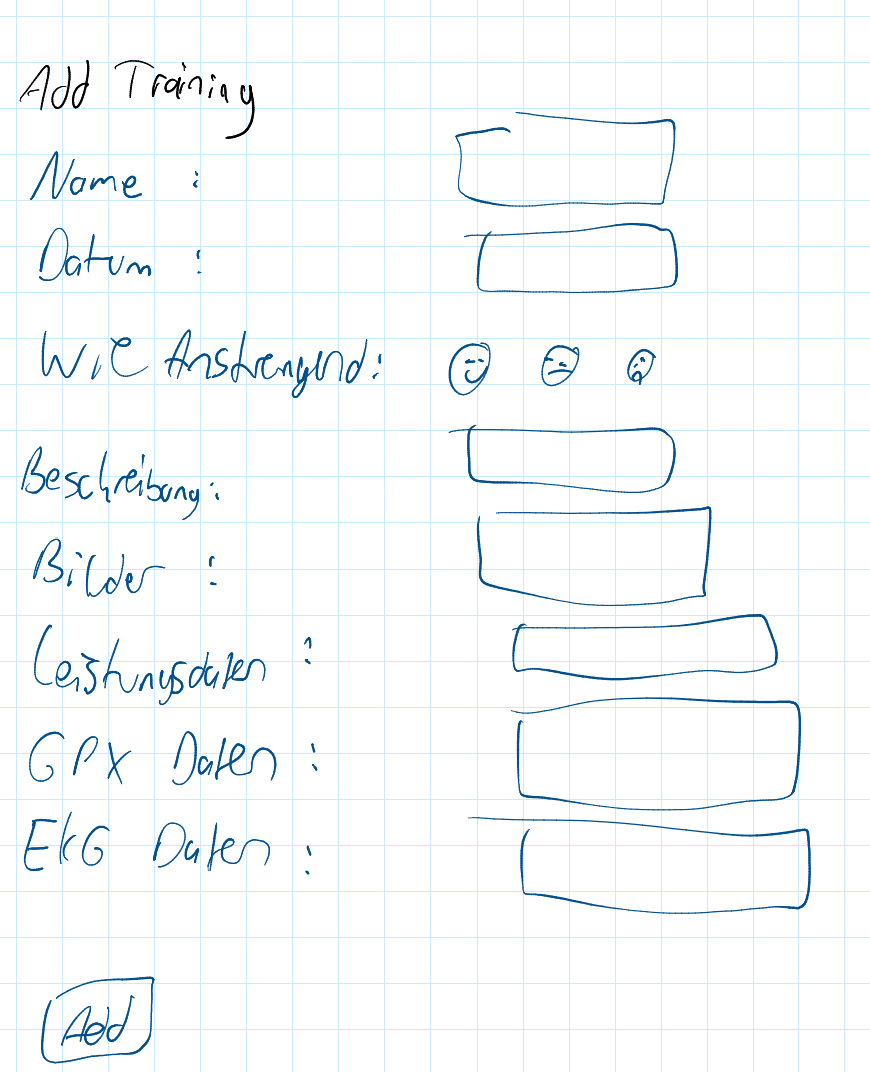 Add Training
Name :
Datum :
Wie Anstrengend:
Beschreibung:
Bilder :
Leistungsdaten :
GPX Daten :
EKG Daten :
Add